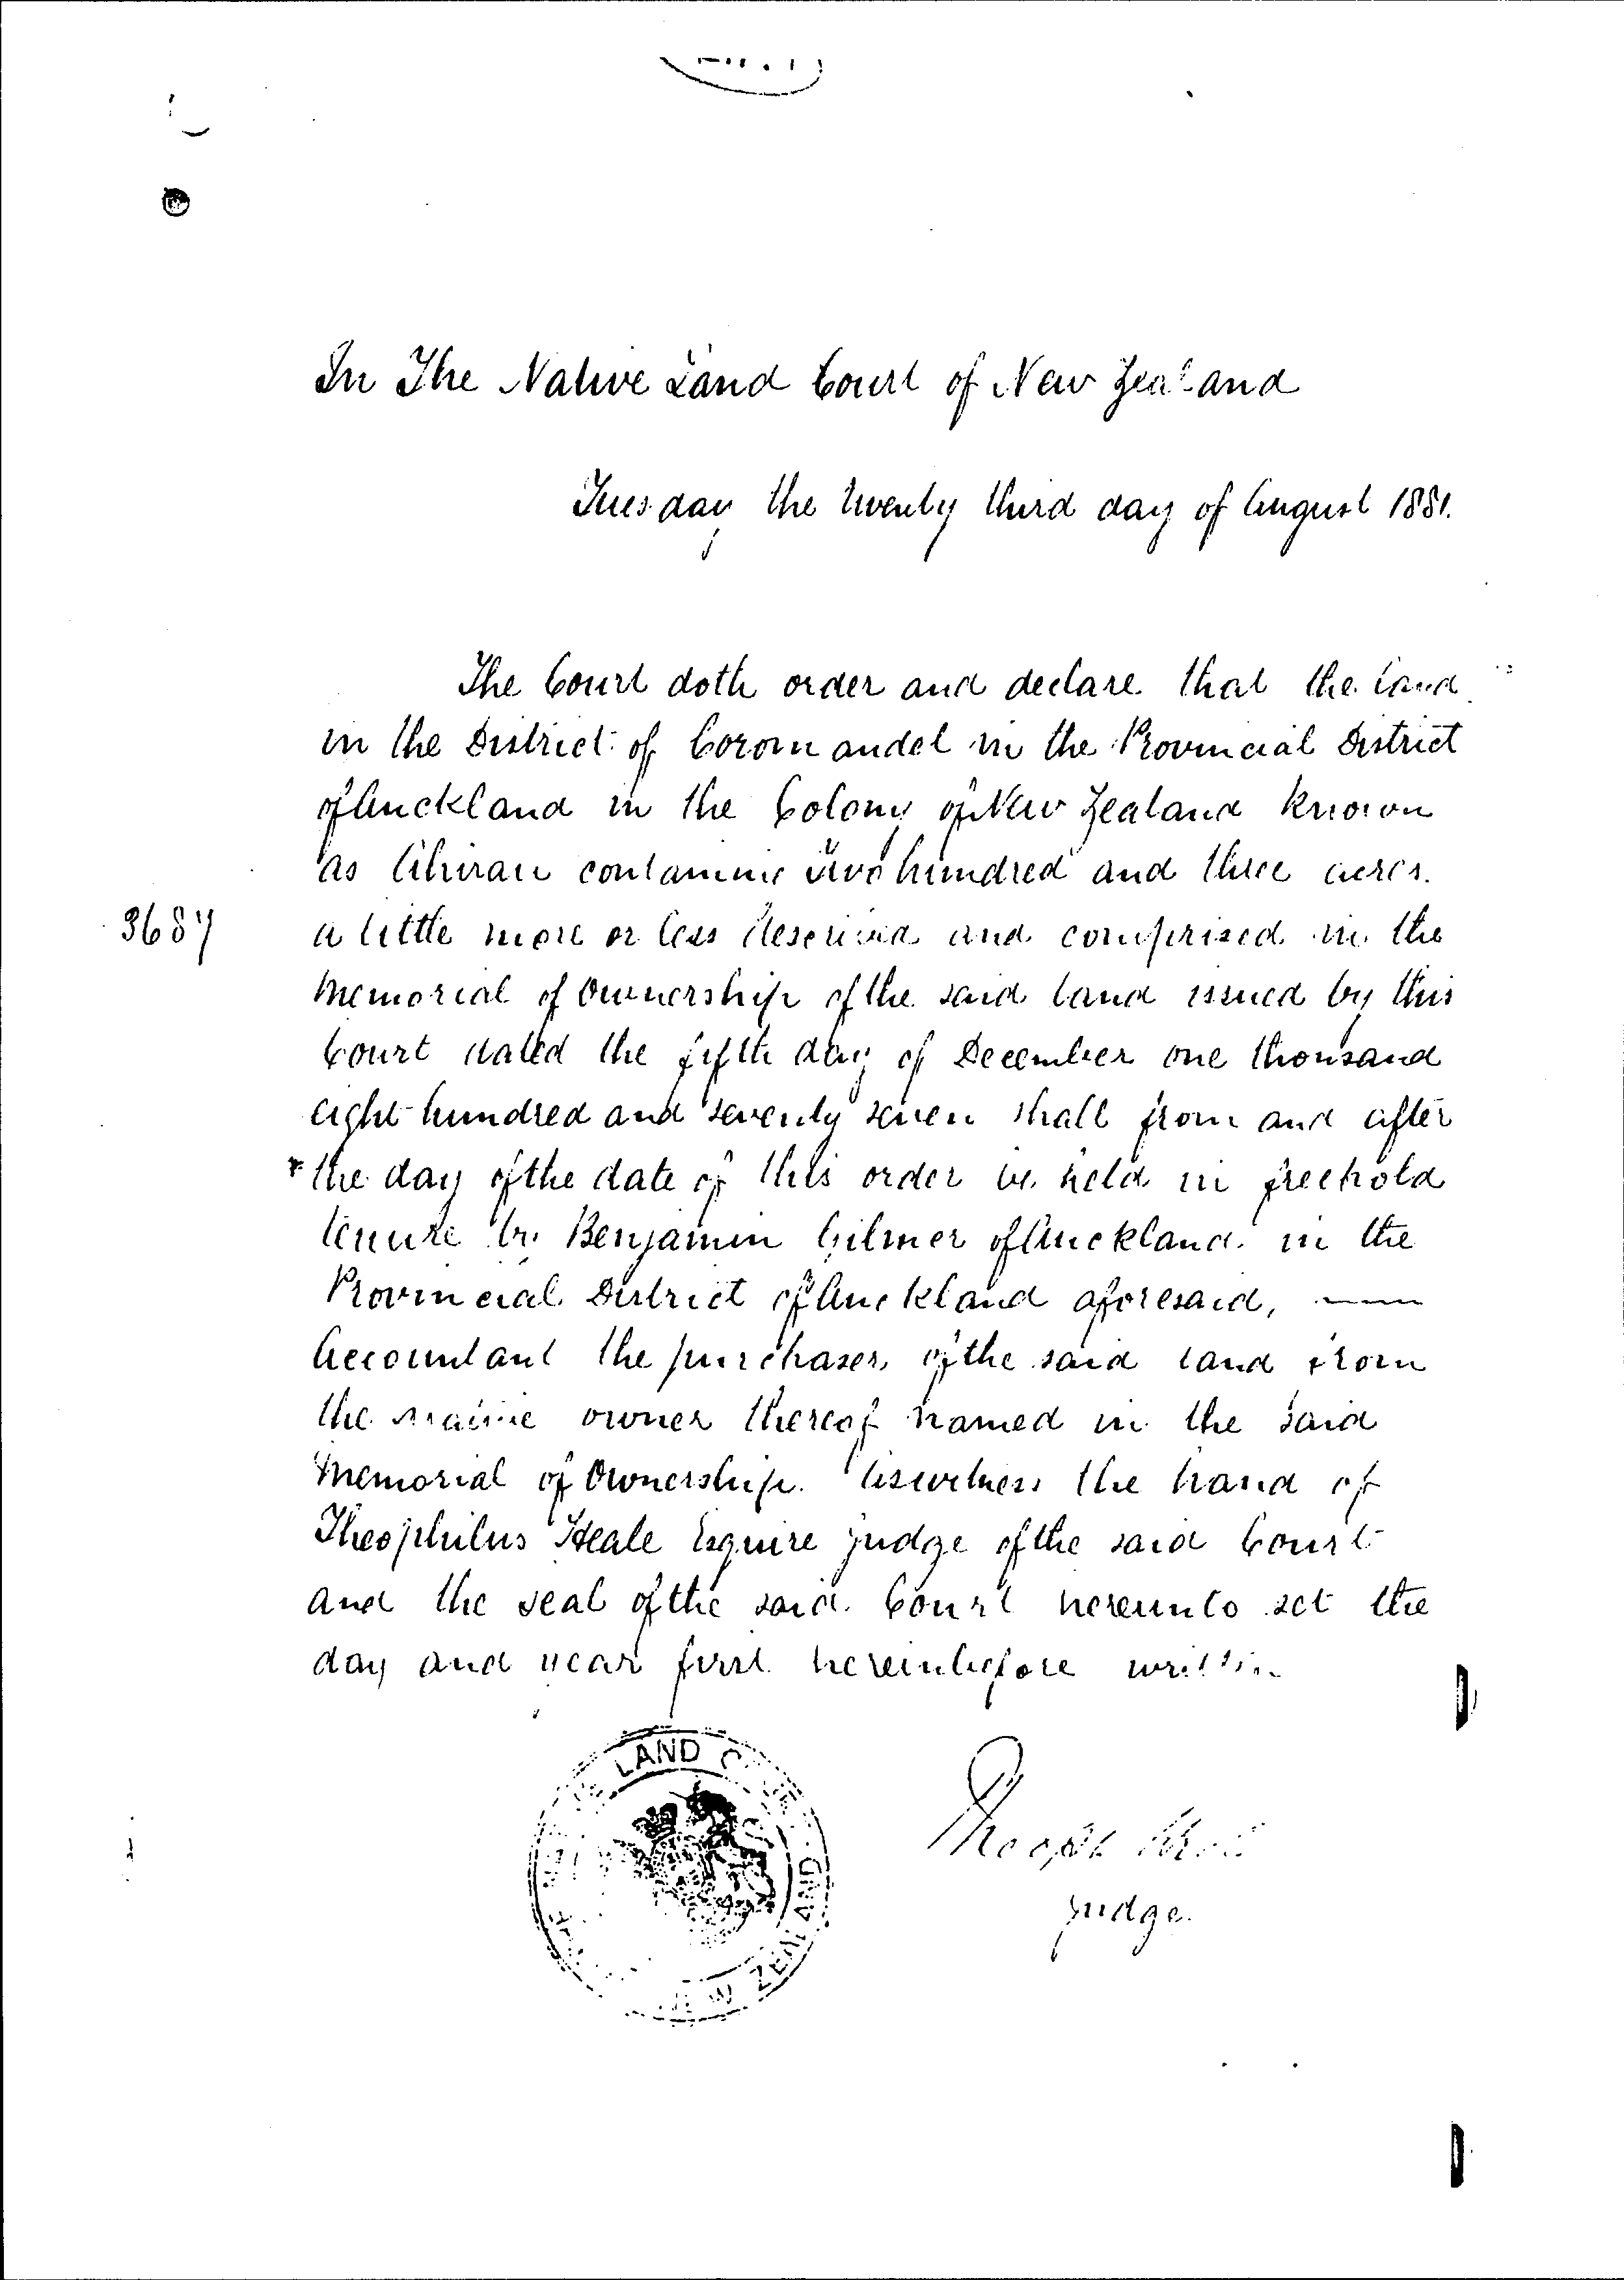 In The Native Land Court of New Zealand
Tuesday the twenty third day of August 1881.
The Court doth order and declare that the land
in the District of Coromandel in the Provincial District
of Auckland in the Colony of New Zealand known
as containing two hundred and three acres
3687
a little more or less described and comprised in the
Memorial of Ownership of the said land issued by this
Court dated the fifth day of December one thousand
eight hundred and seventy seven shall from and after
the day of the date of this order be held in freehold
tenure by Benjamin Gilmer of Auckland in the
Provincial District of Auckland aforesaid,
Accountant the purchaser of the said land from
the native owner thereof named in the said
Memorial of Ownership. As witness the hand of
Theophilus Heale Esquire Judge of the said Court
and the seal of the said Court hereunto set the
day and year first hereinbefore written
LAND
ZEALAND
Judge.